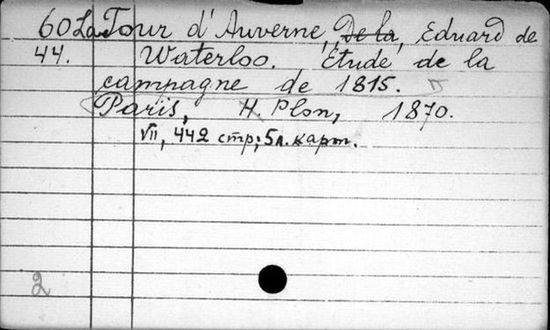 60 La Tour d'Auverne, De la, Eduard de
44. Waterloo. Étude de la
campagne de 1815.
Paris, H. Plon, 1870.
VII, 442 стр; 5 л. карт.
2